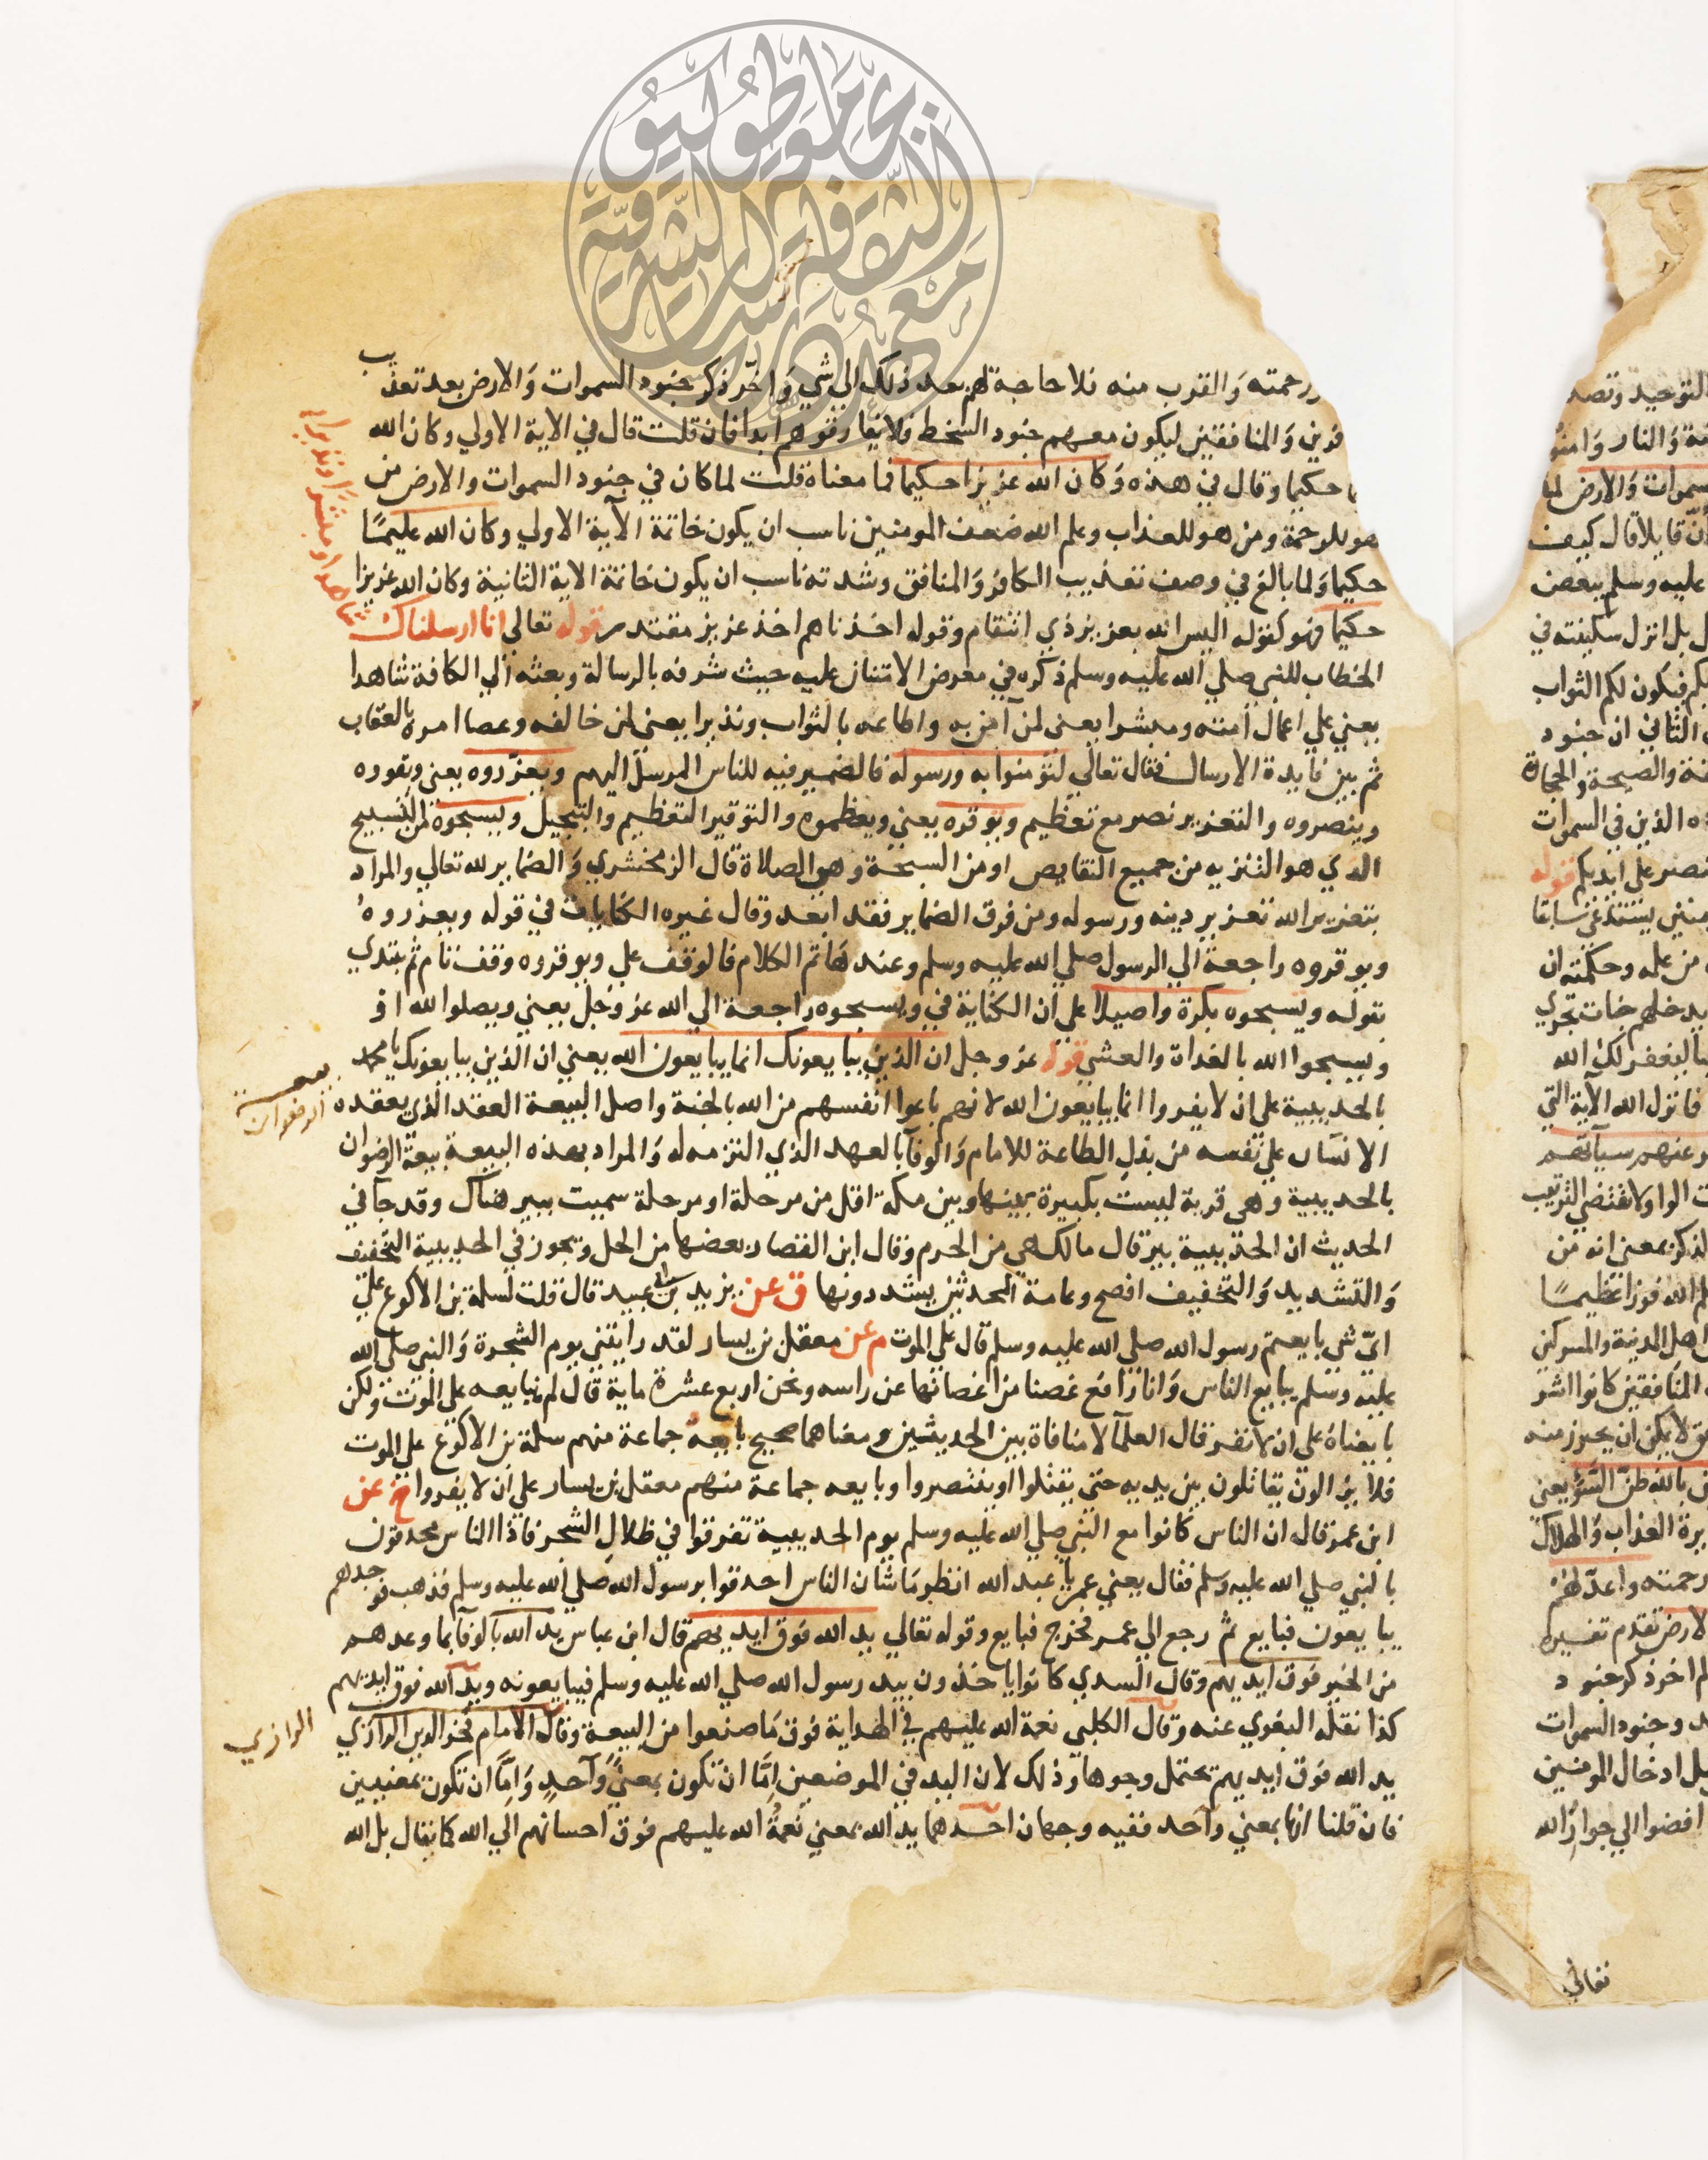 رحمته والقرب منه فلا حاجة لهم بعد ذلك الي شي واخّر ذكر جنود السموات والارض بعد تعذيب
فرين والمنافقين ليكون معهم جنود السخط فلا يفارقوهم ابدا فان قلت قال في الاية الاولي وكان الله
حكيما وقال في هذه وكان الله عزيزا حكيما فما معناه قلت لما كان في جنود السموات والارض من
هو للرحمة ومن هو للعذاب وعلم الله ضعف المومنين ناسب ان يكون خاتمة الآية الاولي وكان الله عليمًا
حكيما ولما بالغ في وصف تعذيب الكافر والمنافق وشدته ناسب ان يكون خاتمة الاية الثانية وكان الله عزيزا
حكيما فهو كقوله اليس الله بعزيز ذي انتقام وقوله اخذناهم اخذ عزيز مقتدر قوله تعالي انا ارسلناك
شاهدا ومبشرًا ونذيرا
الخطاب للنبي صلي الله عليه وسلم ذكره في معرض الامتنان عليه حيث شرفه بالرسالة وبعثه الي الكافة شاهدا
يعني علي اعمال امته ومبشرا يعني لمن آمن به واطاعه بالثواب ونذيرا يعني لمن خالفه وعصا امره بالعقاب
ثم بين فايدة الارسال فقال تعالي لتؤمنوا به ورسوله فالضمير فيه للناس المرسل اليهم وتعزّروه يعني ويقووه
وينصروه والتعزير نصر مع تعظيم وتوقروه يعني ويعظموه والتوقير التعظيم والتبجيل ويسبحوه من التسبيح
الذي هو التنزيه من جميع النقايص او من السبحة وهي الصلاة قال الزمخشري والضماير لله تعالي والمراد
بتعزير الله تعزير دينه ورسوله ومن فرق الضماير فقد ابعد وقال غيره الكنايات في قوله ويعزروه
ويوقروه راجعة الي الرسول صلي الله عليه وسلم وعندها تم الكلام فالوقف علي ويوقروه وقف تام ثم يبتدي
بقوله ويسبحوه بكرة واصيلا علي ان الكناية في ويسبحوه راجعة الي الله عز وجل يعني ويصلوا لله او
ويسبحوا الله بالغداة والعشي قوله عز وجل ان الذين يبايعونك انما يبايعون الله يعني ان الذين يبايعونك يا محمد
بالحديبية علي ان لا يفروا انما يبايعون الله لانهم باعوا انفسهم من الله بالجنة واصل البيعة العقد الذي يعقده
بيعة الرضوان
الانسان علي نفسه من بذل الطاعة للامام والوفا بالعهد الذي التزمه له والمراد بهذه البيعة بيعة الرضوان
بالحديبية وهي قرية ليست بكبيرة بينها وبين مكة اقل من مرحلة او مرحلة سميت ببير هناك وقد جا في
الحديث ان الحديبية بير قال مالك هي من الحرم وقال ابن القصار بعضها من الحل ويجوز في الحديبية التخفيف
والتشديد والتخفيف افصح وعامة المحدثين يشددونها ق عن يزيد بن ابي عبيد قال قلت لسلمة بن الاكوع علي
ايّ شي بايعتم رسول الله صلي الله عليه وسلم قال علي الموت م عن معقل بن يسار لقد رايتني يوم الشجرة والنبي صلي الله
عليه وسلم يبايع الناس وانا رافع غصنا من اغصانها عن راسه ونحن اربع عشرة ماية قال لم نبايعه علي الموت ولكن
بايعناه علي ان لا نفر قال العلما لا منافاة بين الحديثين ومعناهما صحيح بايعه جماعة منهم سلمة بن الاكوع علي الموت
فلا يزالون يقاتلون بين يديه حتي يقتلوا او ينتصروا وبايعه جماعة منهم معقل بن يسار علي ان لا يفروا خ عن
ابن عمر قال ان الناس كانوا مع النبي صلي الله عليه وسلم يوم الحديبية تفرقوا في ظلال الشجر فاذا الناس محدقون
بالنبي صلي الله عليه وسلم فقال يعني عمر يا عبد الله انظر ما شان الناس احدقوا برسول الله صلي الله عليه وسلم فذهب فوجدهم
يبايعون فبايع ثم رجع الي عمر فخرج فبايع وقوله تعالي يد الله فوق ايديهم قال ابن عباس يد الله بالوفا بما وعدهم
من الخير فوق ايديهم وقال السدي كانوا ياخذون بيد رسول الله صلي الله عليه وسلم فيبايعونه ويد الله فوق ايديهم
كذا نقله البغوي عنه وقال الكلبي نعمة الله عليهم في الهداية فوق ما صنعوا من البيعة وقال الامام فخر الدين الرازي
الرازي
يد الله فوق ايديهم يحتمل وجوها وذلك لان اليد في الموضعين امّا ان تكون بمعنيً واحدٍ وامّا ان تكون بمعنيين
فان قلنا انها بمعني واحد ففيه وجهان احدهما يد الله بمعني نعمة الله عليهم فوق احسانهم الي الله كما يقال بل الله
التوحيد وتصد
والنار وامنوا
السموات والارض
قايلا قال كيف
عليه وسلم ببعض
بل انزل سكينته في
فيكون لكم الثواب
الثاني ان جنود
والصيحة والحجارة
الذين في السموات
علي ايديكم قوله
من علمه وحكمته ان
يدخلهم جنات تجري
ليغفر لك الله
فانزل الله الآية التي
عنهم سيآتهم
الواو لا تقتضي الترتيب
بمعني انه من
الله فوزا عظيمًا
اهل المدينة والمشركين
المنافقين كانوا اشر
لا يمكن ان يحترز منه
بالله ظن السوء يعني
العذاب والهلاك
رحمته واعدّ لهم
تقدم تفسيره
اخر ذكر جنود
وجنود السموات
ادخال المومنين
افضوا الي جوار الله
تعالي